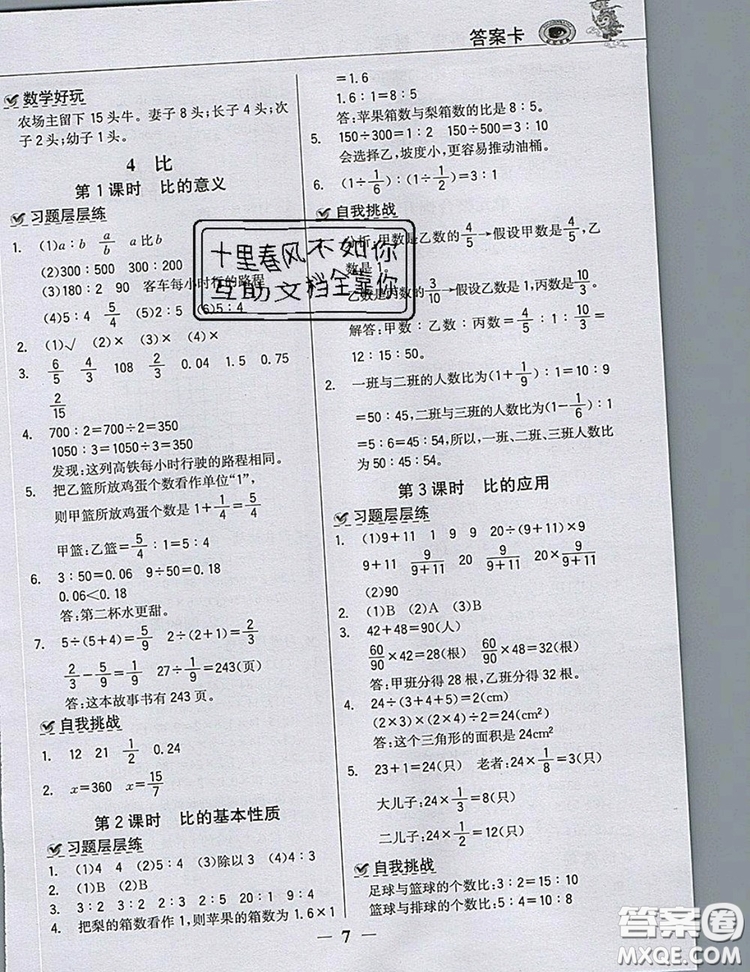 答案卡
数学好玩
农场主留下 15 头牛。妻子 8 头;长子 4 头;次
子 2 头;幼子 1 头。
4 比
第 1 课时 比的意义
习题层层练
1. (1)a∶b a/b a 比 b
(2)300∶500 300∶200
(3)180∶2 90 客车每小时行的路程
(4)5∶4 (5)2∶5 (6)5∶4
2. (1)√ (2)× (3)×
3. 6/5 4/3 108 2/3 0.04 1.5 0.75
2/15
4. 700∶2=700÷2=350
1050∶3=1050÷3=350
发现:这列高铁每小时行驶的路程相同。
5. 把乙篮所放鸡蛋个数看作单位“1”,
则甲篮所放鸡蛋个数是 1+1/4=5/4
甲篮∶乙篮=5/4∶1=5∶4
6. 3∶50=0.06 9÷50=0.18
0.06<0.18
答:第二杯水更甜。
7. 5÷(5+4)=5/9 2÷(2+1)=2/3
2/3-5/9=1/9 27÷1/9=243(页)
答:这本故事书有 243 页。
自我挑战
1. 12 21 1/2 0.24
2. x=360 x=15/7
第 2 课时 比的基本性质
习题层层练
1. (1)4 4 (2)5 (3)除以 3 (4)4∶3
2. (1)B (2)B
3. 4∶3 3∶2 2∶3 2∶5 20∶1 9∶4
4. 把梨的箱数看作 1,则苹果的箱数为 1.6×1
=1.6
1.6∶1=8∶5
答:苹果箱数与梨箱数的比是 8∶5。
5. 150÷300=1∶2 150÷500=3∶10
会选择乙,坡度小,更容易推动油桶。
6. (1÷1/6)∶(1÷1/3)=2∶1
自我挑战
1. 分析:甲数是乙数的4/5→假设甲数是4/5,乙
数是 1。
乙数是丙数的3/10→假设乙数是 1,丙数是10/3。
解答:甲数∶乙数∶丙数=4/5∶1∶10/3=
12∶15∶50。
2. 一班与二班的人数比为(1+1/9)∶1
=50∶45,二班与三班的人数比为(1-1/6)∶1
=5∶6=45∶54,所以,一班、二班、三班人数比
为 50∶45∶54。
第 3 课时 比的应用
习题层层练
1. (1)9+11 1 9 9 20÷(9+11)×9
9+11 9/9+11 9/9+11 20×9/9+11
(2)90
2. (1)B (2)A (3)B
3. 42+48=90(人)
60/90×42=28(根) 60/90×48=32(根)
答:甲班分得 28 根,乙班分得 32 根。
4. 24÷(3+4+5)=2(cm)
(2×3)×(2×4)÷2=24(cm²)
答:这个三角形的面积是 24cm²
5. 23+1=24(只) 老者:24×1/8=3(只)
大儿子:24×1/3=8(只)
二儿子:24×1/2=12(只)
自我挑战
足球与篮球的个数比:3∶2=15∶10
篮球与排球的个数比:5∶4=10∶8
— 7 —
十里春风不如你
互助文档全靠你
答案圈
MXQE.COM